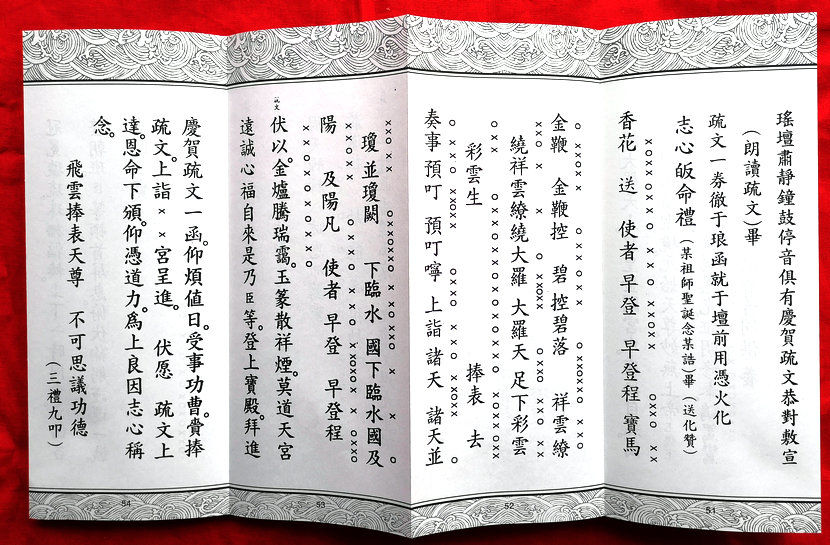 瑤壇肅靜鐘鼓停音俱有慶賀疏文恭對敷宣
（朗讀疏文）畢
疏文一券徹于琅函就于壇前用憑火化
志心皈命禮（某祖師聖誕念某誥）畢（送化贊）
香花 送 使者 早登 早登程 寶馬
51
金鞭 金鞭控 碧 控碧落 祥雲繚
繞祥雲繚繞大羅 大羅天 足下彩雲
彩雲生 捧表 去
奏事 預叮 預叮嚀 上詣 諸天 諸天並
52
瓊並瓊闕 下臨水 國下臨水國及
陽 及陽凡 使者 早登 早登程
伏以。金爐騰瑞靄。玉篆散祥煙。莫道天宮
遠誠心福自來是乃臣等。登上寶殿。拜進
53
慶賀疏文一函。仰煩值日。受事功曹。賫捧
疏文。上詣××宮呈進。 伏愿 疏文上
達。恩命下頒。仰憑道力。為上良因志心稱
念。
飛雲捧表天尊 不可思議功德
（三禮九叩）
54